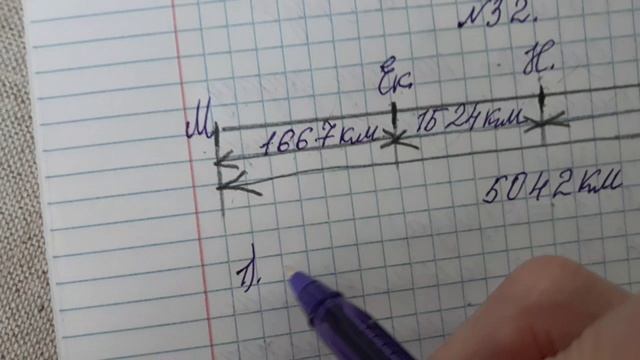 №32.
М Ек. Н.
1667км 1524км
5042км
1).